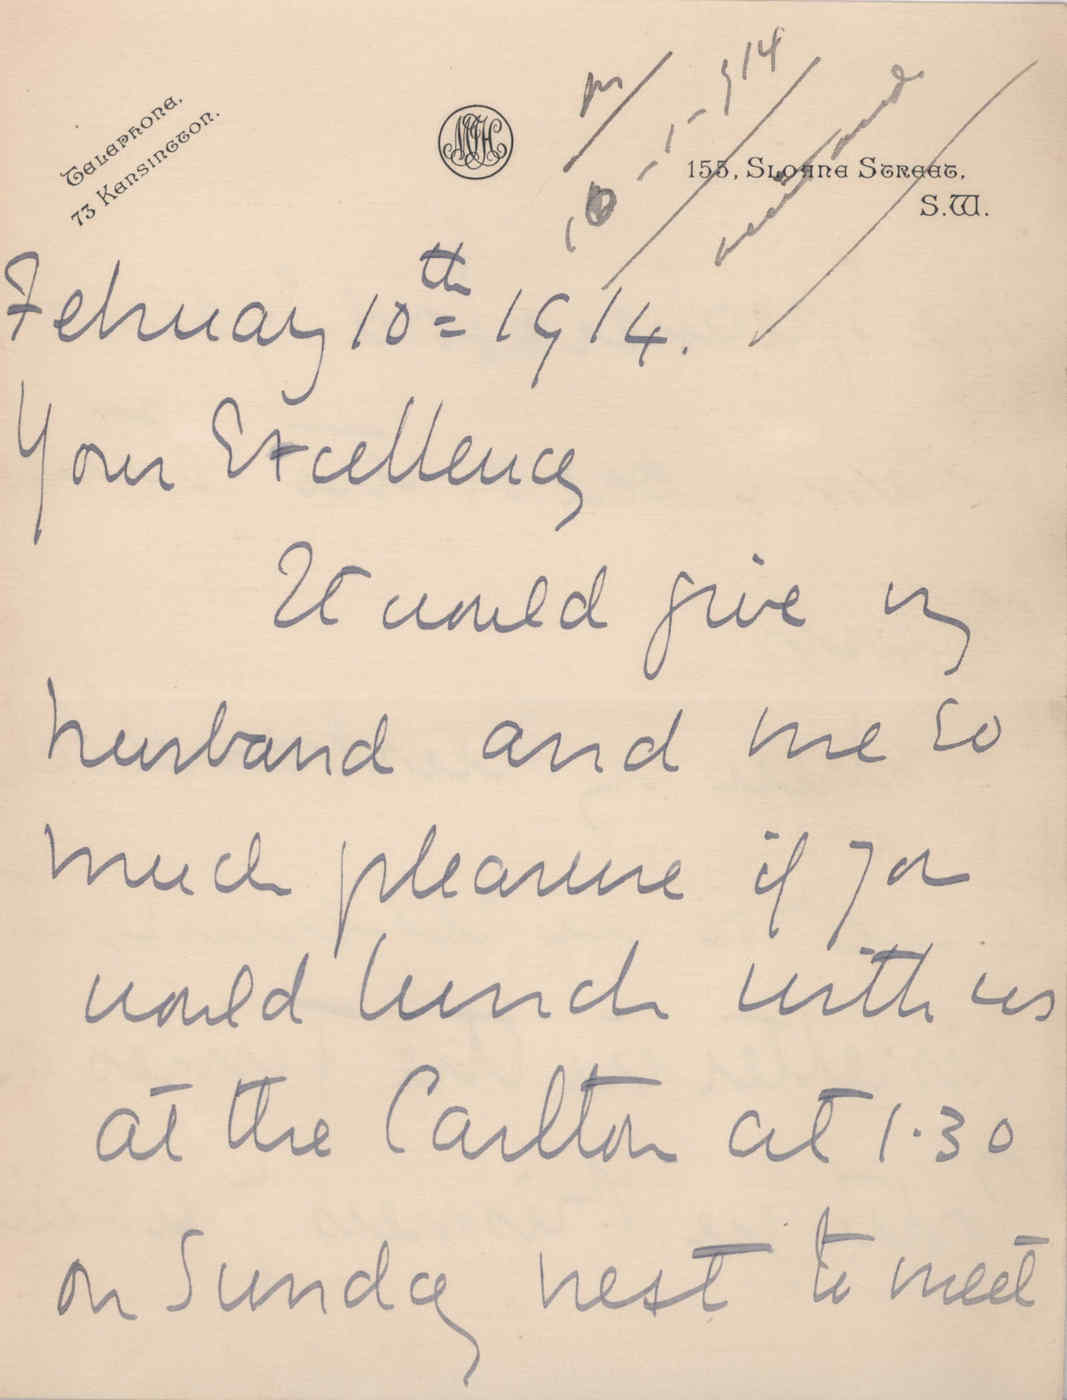 Telephone.
73 Kensington.
155, Sloane Street,
S.W.
February 10th 1914.
Your Excellency
It would give my
husband and me so
much pleasure if you
would lunch with us
at the Carlton at 1.30
on Sunday next to meet